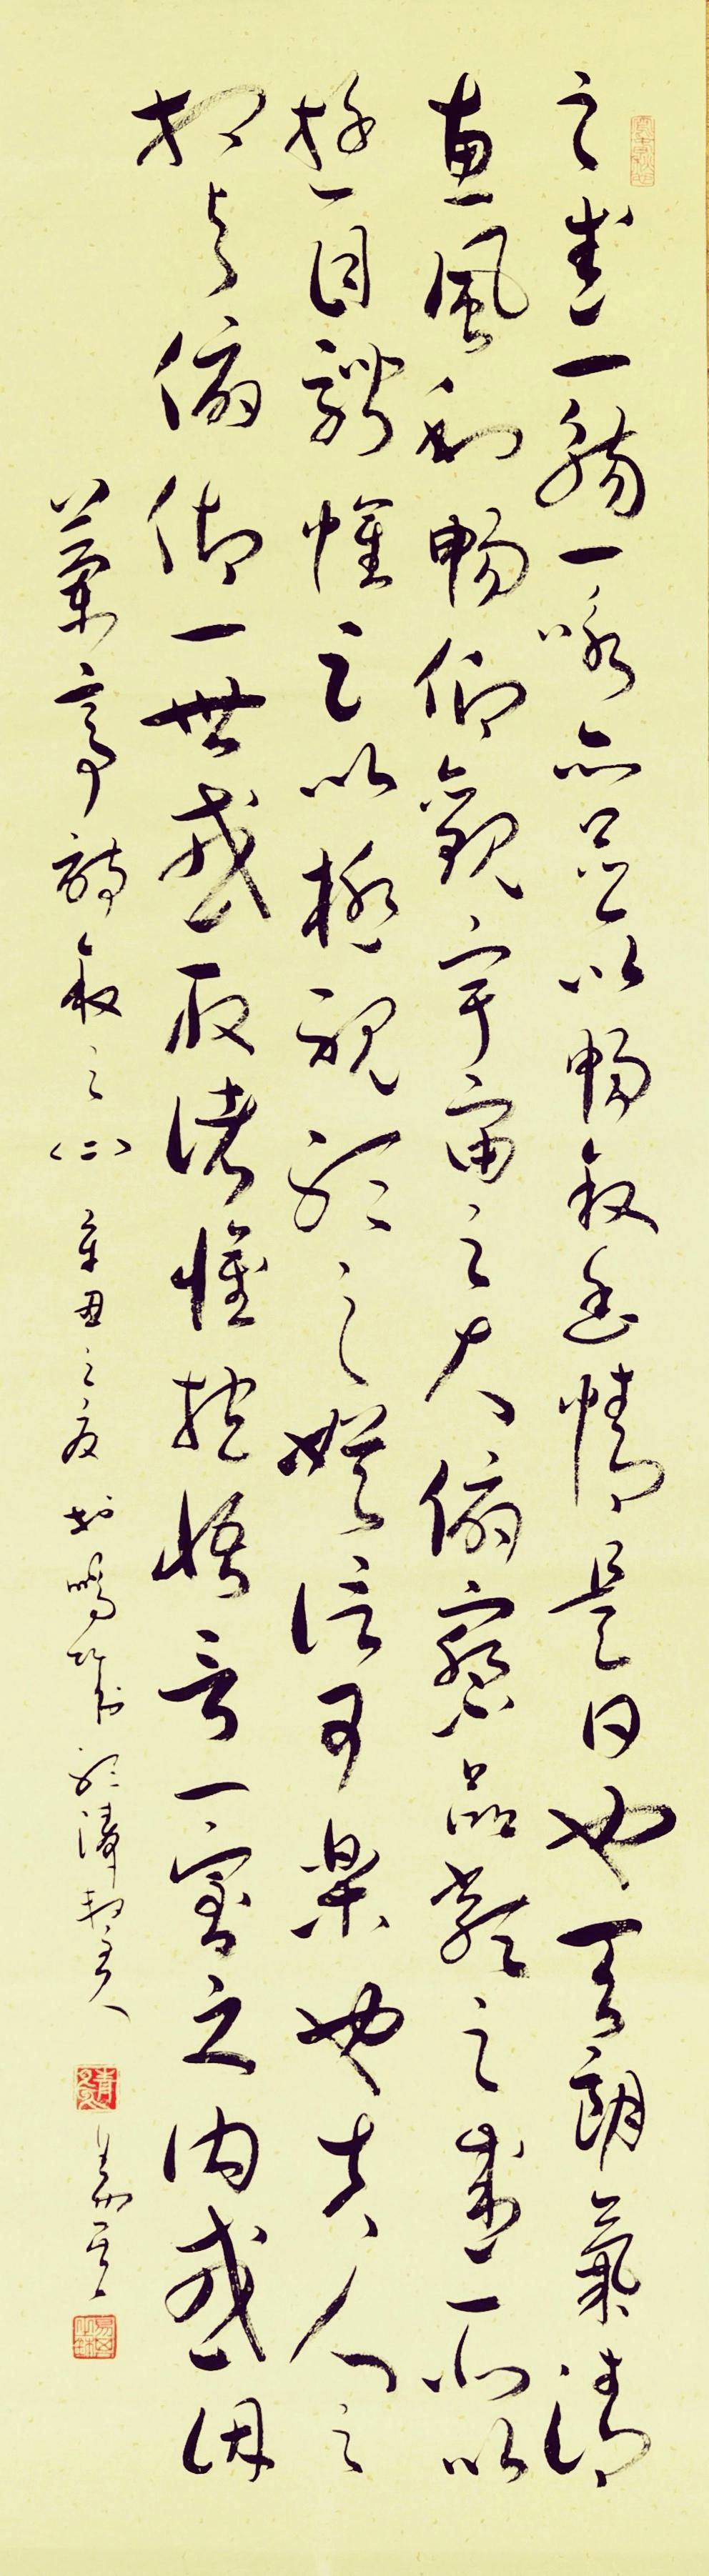 之盛一觴一咏亦足以暢叙幽情是日也天朗氣清
惠風和暢仰觀宇宙之大俯察品類之盛所以
遊目騁懷足以極視聽之娱信可樂也夫人之
相與俯仰一世或取諸懷抱悟言一室之内或因
蘭亭詩叙之(二) 辛丑之夏 於鳴 聽濤